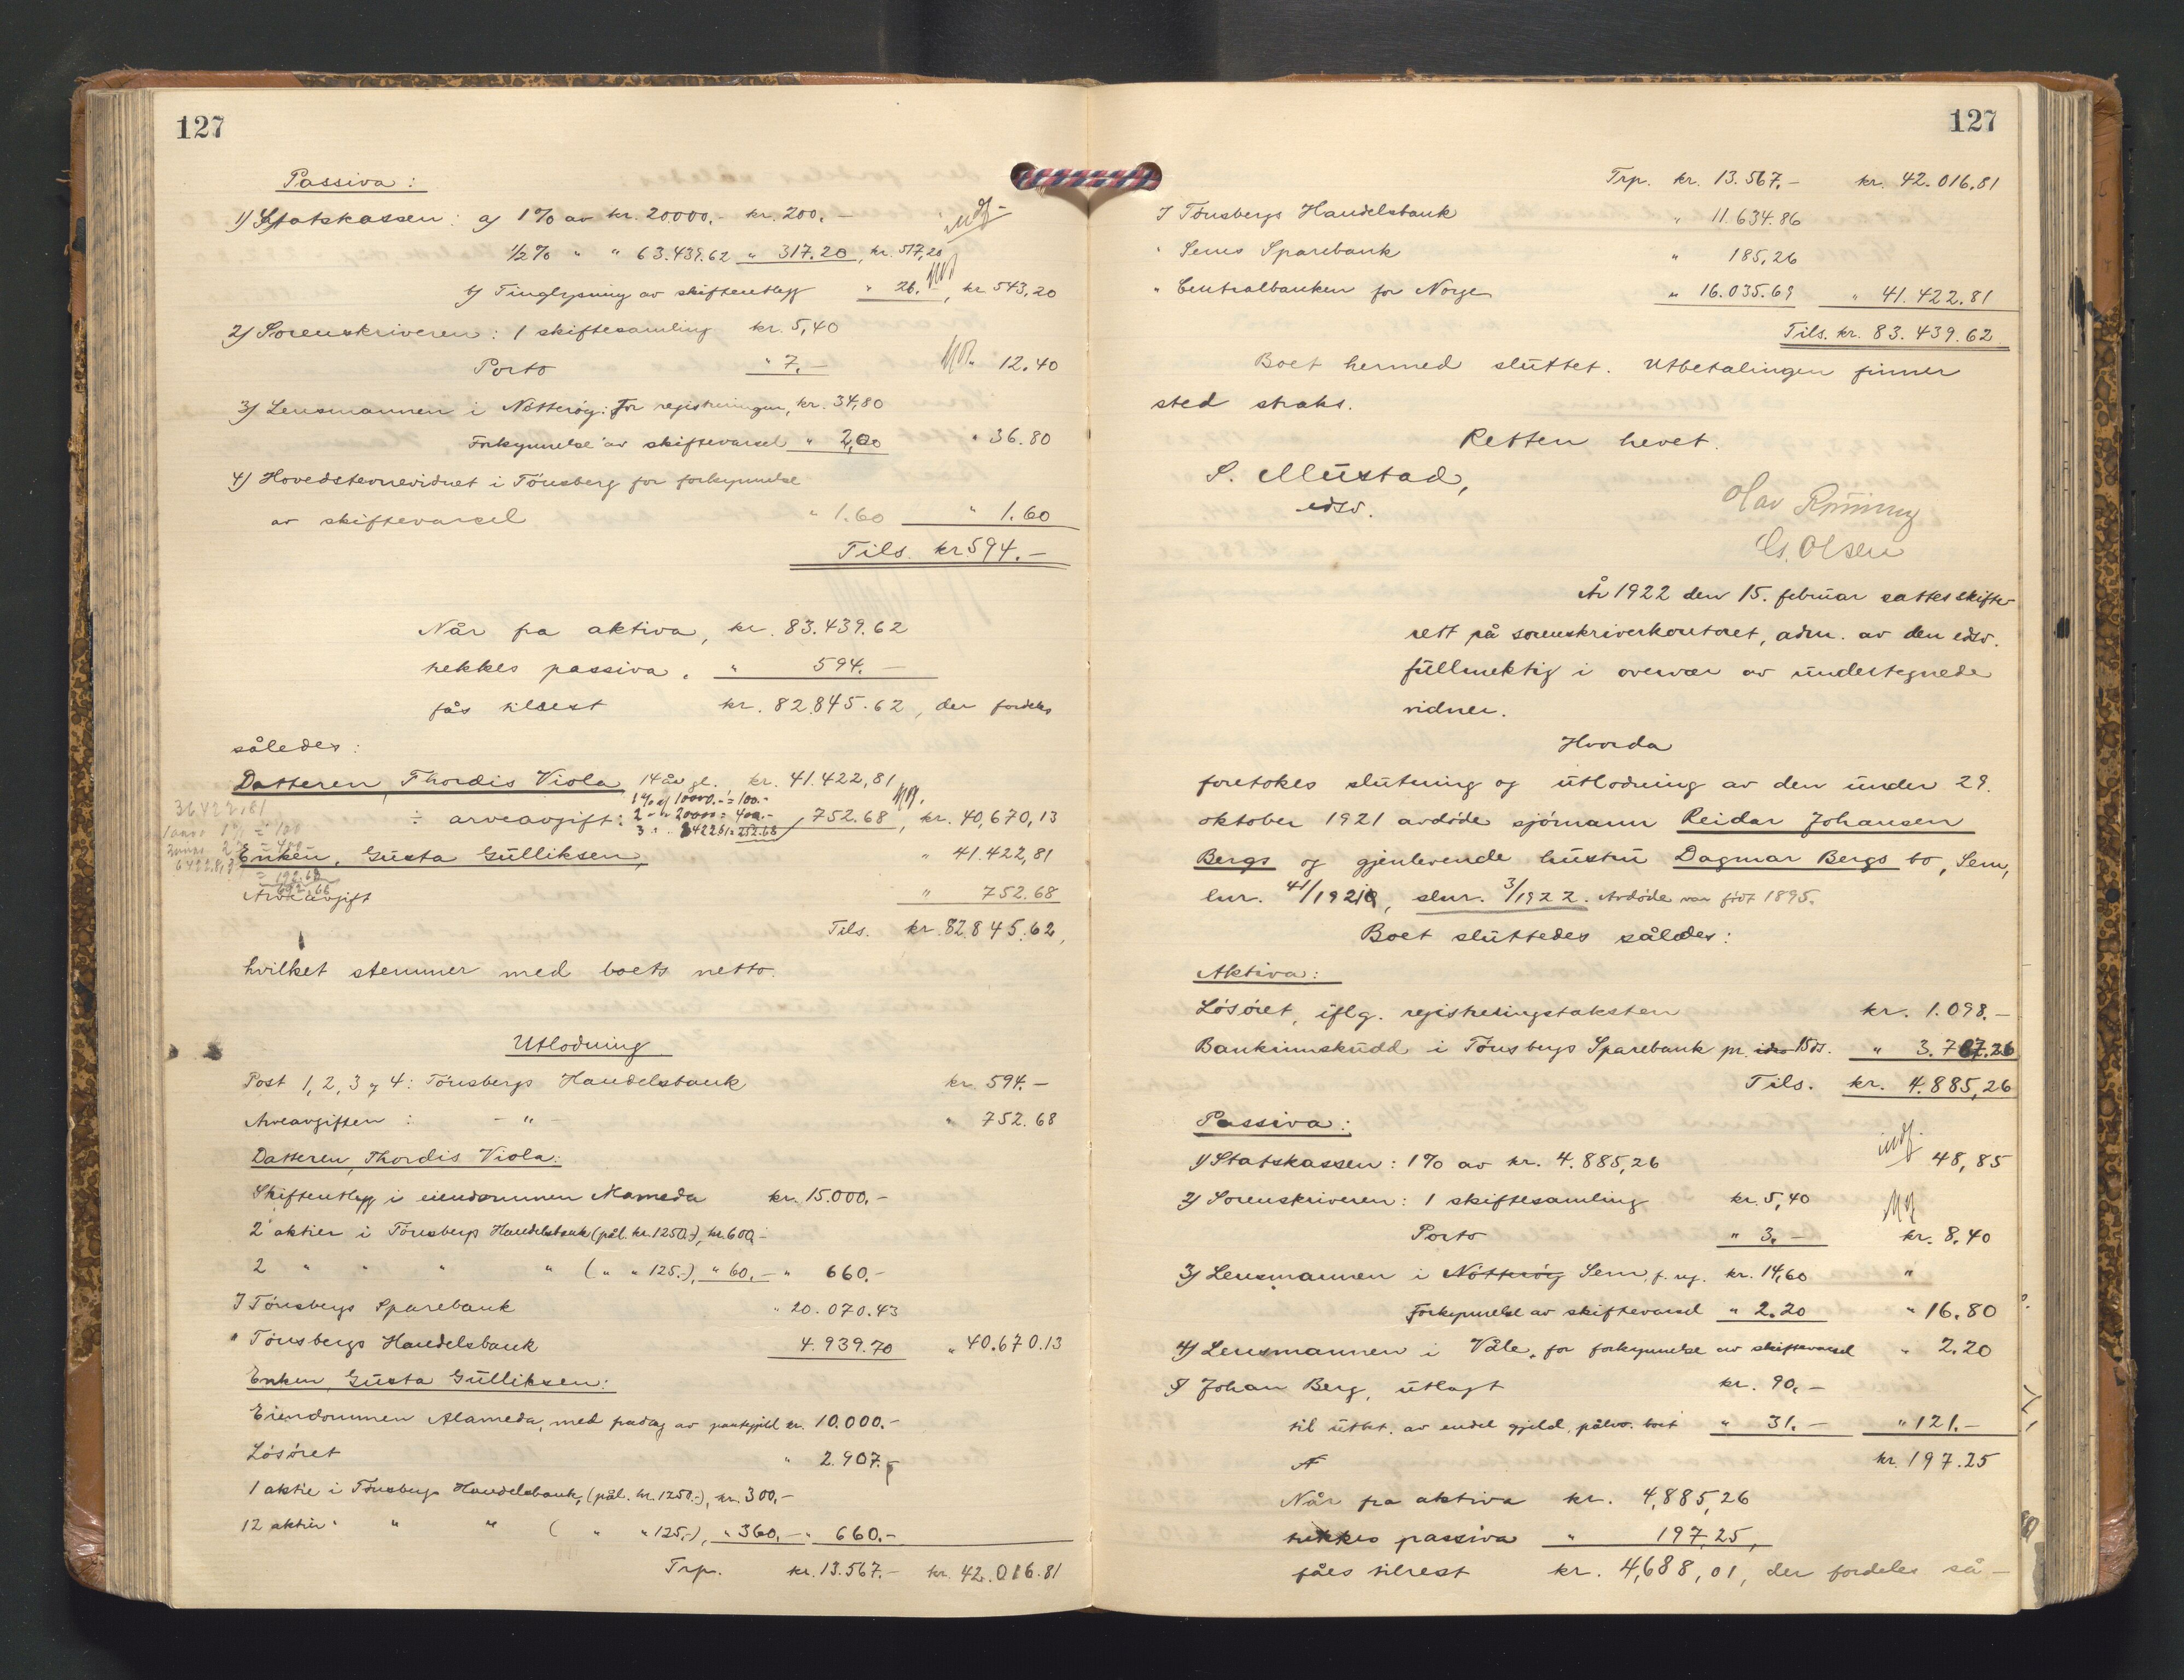 127
Passiva:
1) Statskassen: a) 1% av kr. 20000.- kr. 200.-
½% " " 63.439.62 " 317.20, kr. 517,20
b) Tinglysning av skifteutlegg " 26.-, kr 543,20
2) Sorenskriveren: 1 skiftesamling kr. 5,40
Porto " 7.- " 12.40
3) Lensmannen i Nøtterøy: For registreringen, kr. 34,80
Forkynnelse av skiftevarsel " 2,00 " 36.80
4) Hovedstevnevidnet i Tönsberg for forkynnelse
av skiftevarsel " 1.60 " 1.60
Tils. kr 594.-
Når fra aktiva, kr. 83.439.62
trekkes passiva, " 594.-
fås tilrest kr. 82.845.62, der fordeles
således:
Datteren, Thordis Viola 14 år gl. kr. 41.422,81
1% af 10000.- = 100.-
÷ arveavgift: 2 " " 20000 = 400.- 752.68, kr. 40,670,13
3 " " 8422.81 = 252.68
36422,81
Enken, Gusta Gulliksen, " 41.422,81
Arveavgift " 752.68
Tils. kr. 82.845.62,
hvilket stemmer med boets netto.
Utlodning
Post 1, 2, 3 og 4: Tönsbergs Handelsbank kr. 594.-
Arveavgiften: - " - " 752.68
Datteren, Thordis Viola:
Skifteutlegg i eiendommen Alameda kr. 15.000.-
2 aktier i Tönsbergs Handelsbank (pål. kr. 1250.-), kr. 600.-
2 " " " " ( " " 125.-), " 60.- " 660.-
I Tönsbergs Sparebank " 20.070.43
" Tönsbergs Handelsbank 4.939.70 " 40.670.13
Enken, Gusta Gulliksen:
Eiendommen Alameda, med fradrag av pantegjeld kr. 10.000.-
Lösöret " 2.907.-
1 aktie i Tönsbergs Handelsbank, (pål. kr. 1250.-), kr. 300.-
12 aktier " " " ( " " 125.-), " 360.- " 660.-
Trp. kr. 13.567.- kr. 42.016.81
127
Trp. kr. 13.567.- kr. 42.016,81
I Tönsbergs Handelsbank " 11.634.86
" Sems Sparebank " 185,26
" Centralbanken for Norge " 16.035.69 " 41.422.81
Tils. kr. 83.439.62
Boet hermed sluttet. Utbetalingen finner
sted straks.
Retten hevet.
S. Mustad,
edsv.
Olav Rönning
G. Olsen
År 1922 den 15. februar sattes skifte-
rett på sorenskriverkontoret, adm. av den edsv.
fullmektig i overvær av undertegnede
vidner.
Hvorda
foretokes slutning og utlodning av den under 29.
oktober 1921 avdöde sjömann Reidar Johansen
Bergs og gjenlevende hustru Dagmar Bergs bo, Sem,
lnr. 41/1921, slnr. 3/1922. Avdöde var född 1895.
Boet sluttedes således:
Aktiva:
Lösöret, iflg. registreringstaksten kr. 1.098.-
Bankinnskudd i Tönsbergs Sparebank pr. idag 15 ds. " 3.787.26
Tils. kr. 4.885,26
Passiva:
1) Statskassen: 1% av kr. 4.885,26 48,85
2) Sorenskriveren: 1 skiftesamling kr. 5,40
Porto " 3.- kr. 8.40
3) Lensmannen i Nötteröy Sem, f. reg. kr. 14,60 "
Forkynnelse av skiftevarsel " 2.20 " 16.80
4) Lensmannen i Våle, for forkynnelse av skiftevarsel " 2.20
5) Johan Berg, utlagt kr. 90.-
til utbet. av endel gjeld, påhv. boet " 31.- " 121.-
kr. 197.25
Når fra aktiva kr. 4,885,26
trekkes passiva " 197,25,
fåes tilrest kr. 4,688,01, der fordeles så-